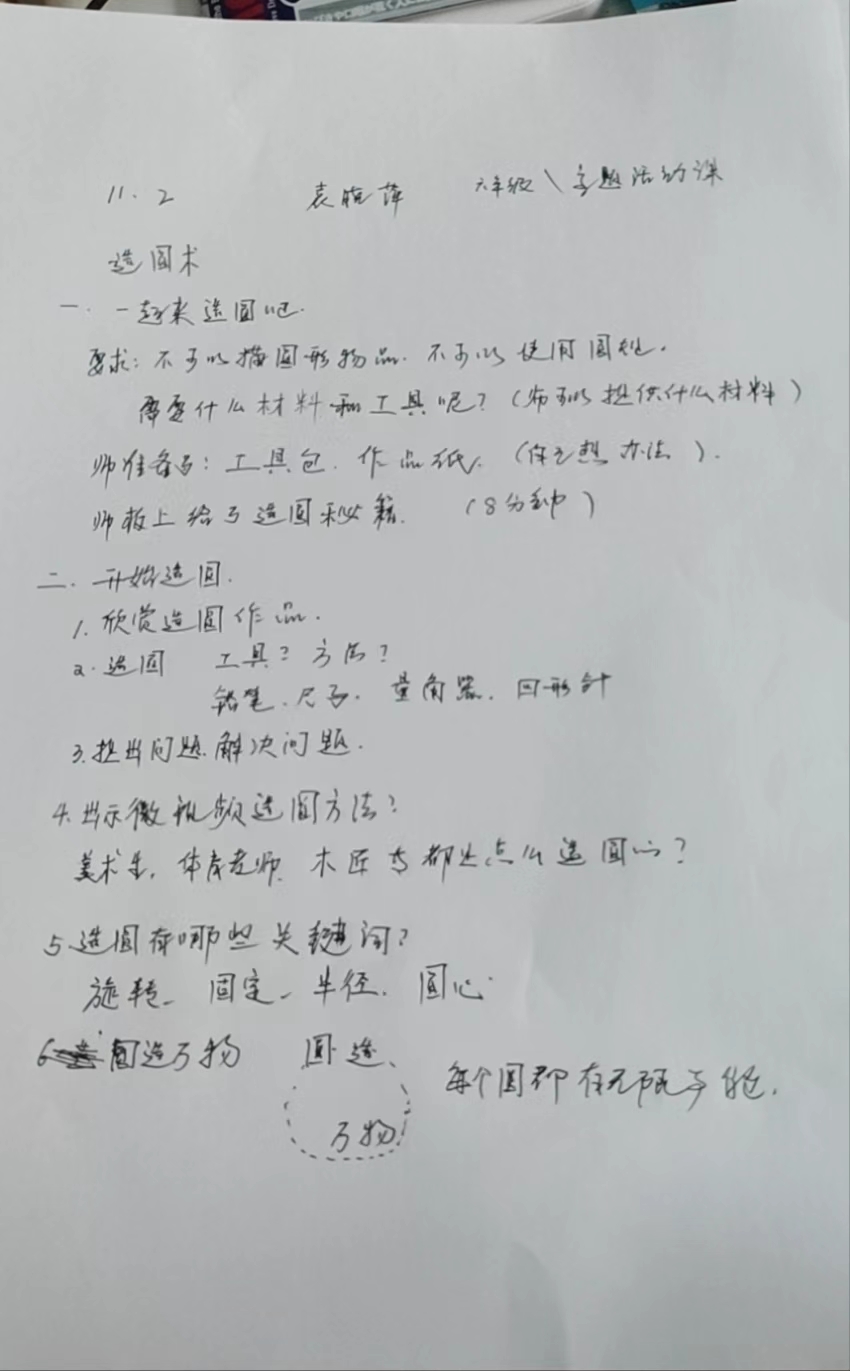 11.2 袁晓萍 六年级\主题活动课
造圆术
一.一起来造圆吧.
要求:不可以描圆形物品.不可以使用圆规.
需要什么材料和工具呢?(师可以提供什么材料)
师准备了:工具包.作品纸.(自己想办法).
师板上给了造圆秘籍.(8分钟)
二.开始造圆.
1.欣赏造圆作品.
2.造圆 工具?方法?
铅笔、尺子、量角器、回形针
3.提出问题.解决问题.
4.出示微视频造圆方法?
美术生,体育老师、木匠 都是怎么造圆的?
5.造圆有哪些关键词?
旋转、固定、半径、圆心
6 圆造万物 圆造、
万物! 每个圆都有无限可能.